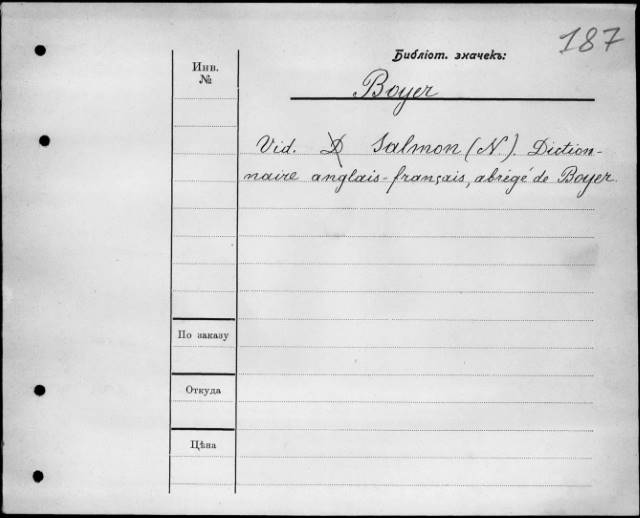 187
Библіот. значекъ:
Инв.
№
Boyer
Vid. D Salmon (N). Diction-
naire anglais-français, abrégé de Boyer.
По заказу
Откуда
Цѣна